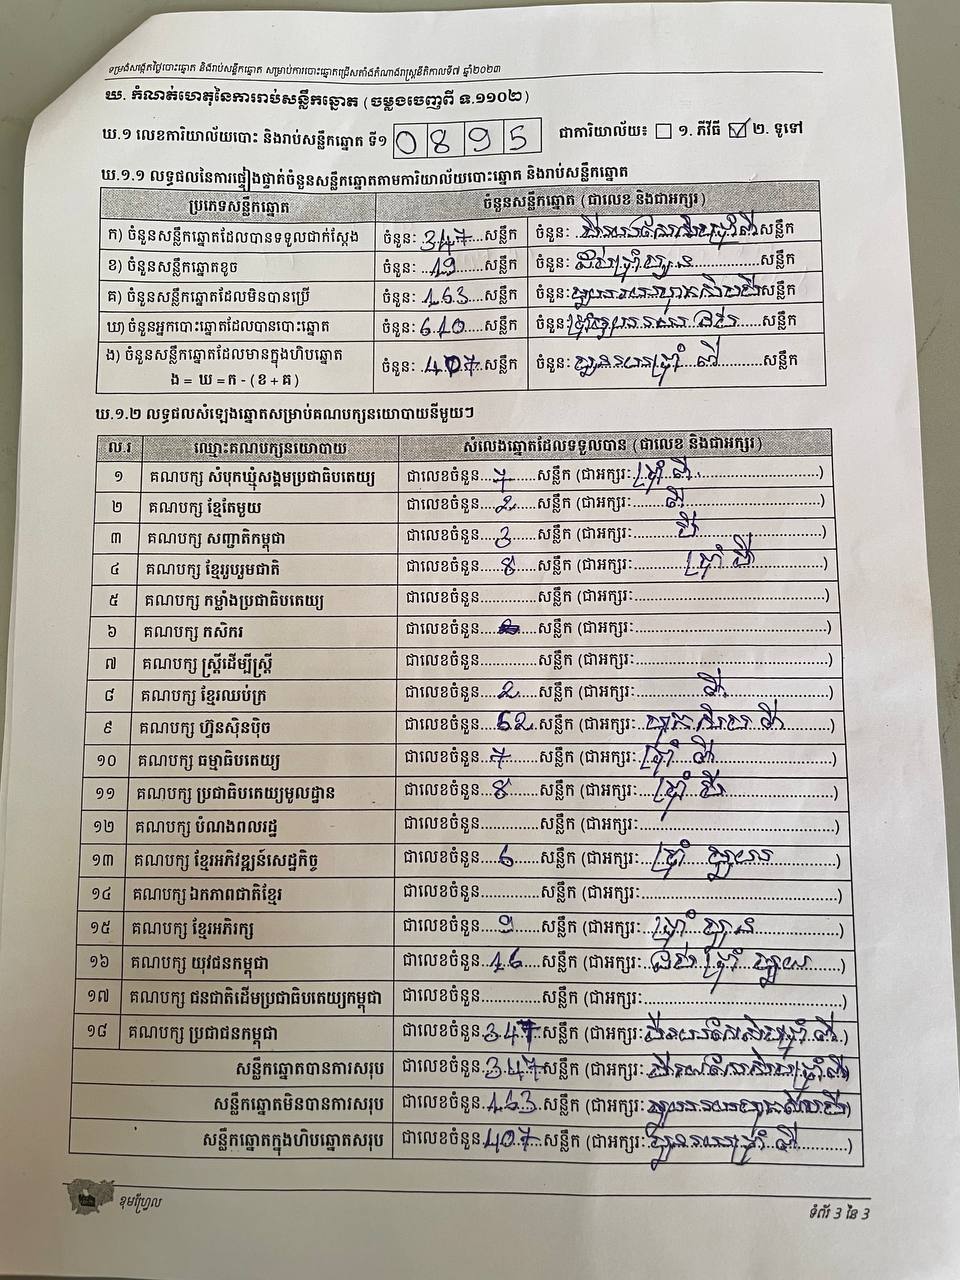 ទម្រង់សង្កេតថ្ងៃបោះឆ្នោត និងរាប់សន្លឹកឆ្នោត សម្រាប់ការបោះឆ្នោតជ្រើសតាំងតំណាងរាស្ត្រនីតិកាលទី៧ ឆ្នាំ២០២៣
ឃ. កំណត់ហេតុនៃការរាប់សន្លឹកឆ្នោត (ចម្លងចេញពី ទ.១១០២)
ឃ.១ លេខការិយាល័យបោះ និងរាប់សន្លឹកឆ្នោត ទី១ 0895 ជាការិយាល័យ៖ ☐ ១. ភីវីធី ☑ ២. ទូទៅ
ឃ.១.១ លទ្ធផលនៃការផ្ទៀងផ្ទាត់ចំនួនសន្លឹកឆ្នោតតាមការិយាល័យបោះឆ្នោត និងរាប់សន្លឹកឆ្នោត
ប្រភេទសន្លឹកឆ្នោត ចំនួនសន្លឹកឆ្នោត (ជាលេខ និងជាអក្សរ)
ក) ចំនួនសន្លឹកឆ្នោតដែលបានទទួលជាក់ស្តែង ចំនួនៈ 347 សន្លឹក ចំនួនៈ សន្លឹក
ខ) ចំនួនសន្លឹកឆ្នោតខូច ចំនួនៈ 19 សន្លឹក ចំនួនៈ ដប់ប្រាំបួន សន្លឹក
គ) ចំនួនសន្លឹកឆ្នោតដែលមិនបានប្រើ ចំនួនៈ 163 សន្លឹក ចំនួនៈ មួយរយហុកសិបបី សន្លឹក
ឃ) ចំនួនអ្នកបោះឆ្នោតដែលបានបោះឆ្នោត ចំនួនៈ 610 សន្លឹក ចំនួនៈ ប្រាំមួយរយ ដប់ សន្លឹក
ង) ចំនួនសន្លឹកឆ្នោតដែលមានក្នុងហិបឆ្នោត
ង = ឃ =ក - (ខ + គ) ចំនួនៈ 407 សន្លឹក ចំនួនៈ បួនរយប្រាំពីរ សន្លឹក
ឃ.១.២ លទ្ធផលសំឡេងឆ្នោតសម្រាប់គណបក្សនយោបាយនីមួយៗ
ល.រ ឈ្មោះគណបក្សនយោបាយ សំលេងឆ្នោតដែលទទួលបាន (ជាលេខ និងជាអក្សរ)
១ គណបក្ស សំបុកឃ្មុំសង្គមប្រជាធិបតេយ្យ ជាលេខចំនួន 7 សន្លឹក (ជាអក្សរៈ ប្រាំពីរ)
២ គណបក្ស ខ្មែរតែមួយ ជាលេខចំនួន 2 សន្លឹក (ជាអក្សរៈ ពីរ)
៣ គណបក្ស សញ្ជាតិកម្ពុជា ជាលេខចំនួន 3 សន្លឹក (ជាអក្សរៈ បី)
៤ គណបក្ស ខ្មែររួបរួមជាតិ ជាលេខចំនួន 8 សន្លឹក (ជាអក្សរៈ ប្រាំបី)
៥ គណបក្ស កម្លាំងប្រជាធិបតេយ្យ ជាលេខចំនួន សន្លឹក (ជាអក្សរៈ )
៦ គណបក្ស កសិករ ជាលេខចំនួន សន្លឹក (ជាអក្សរៈ )
៧ គណបក្ស ស្ត្រីដើម្បីស្ត្រី ជាលេខចំនួន សន្លឹក (ជាអក្សរៈ )
៨ គណបក្ស ខ្មែរឈប់ក្រ ជាលេខចំនួន 2 សន្លឹក (ជាអក្សរៈ ពីរ)
៩ គណបក្ស ហ៊្វុនស៊ិនប៉ិច ជាលេខចំនួន 62 សន្លឹក (ជាអក្សរៈ ហុកសិប ពីរ)
១០ គណបក្ស ធម្មាធិបតេយ្យ ជាលេខចំនួន 7 សន្លឹក (ជាអក្សរៈ ប្រាំពីរ)
១១ គណបក្ស ប្រជាធិបតេយ្យមូលដ្ឋាន ជាលេខចំនួន 8 សន្លឹក (ជាអក្សរៈ ប្រាំបី)
១២ គណបក្ស បំណងពលរដ្ឋ ជាលេខចំនួន សន្លឹក (ជាអក្សរៈ )
១៣ គណបក្ស ខ្មែរអភិវឌ្ឍន៍សេដ្ឋកិច្ច ជាលេខចំនួន 6 សន្លឹក (ជាអក្សរៈ ប្រាំមួយ)
១៤ គណបក្ស ឯកភាពជាតិខ្មែរ ជាលេខចំនួន សន្លឹក (ជាអក្សរៈ )
១៥ គណបក្ស ខ្មែរអភិរក្ស ជាលេខចំនួន 9 សន្លឹក (ជាអក្សរៈ ប្រាំបួន)
១៦ គណបក្ស យុវជនកម្ពុជា ជាលេខចំនួន 16 សន្លឹក (ជាអក្សរៈ ដប់ប្រាំមួយ)
១៧ គណបក្ស ជនជាតិដើមប្រជាធិបតេយ្យកម្ពុជា ជាលេខចំនួន សន្លឹក (ជាអក្សរៈ )
១៨ គណបក្ស ប្រជាជនកម្ពុជា ជាលេខចំនួន 347 សន្លឹក (ជាអក្សរៈ បីរយសែសិបប្រាំពីរ)
សន្លឹកឆ្នោតបានការសរុប ជាលេខចំនួន 347 សន្លឹក (ជាអក្សរៈ បីរយសែសិបប្រាំពីរ)
សន្លឹកឆ្នោតមិនបានការសរុប ជាលេខចំនួន 163 សន្លឹក (ជាអក្សរៈ មួយរយហុកសិបបី)
សន្លឹកឆ្នោតក្នុងហិបឆ្នោតសរុប ជាលេខចំនួន 407 សន្លឹក (ជាអក្សរៈ បួនរយប្រាំពីរ)
ខុមហ្វ្រែល
ទំព័រ 3 នៃ 3